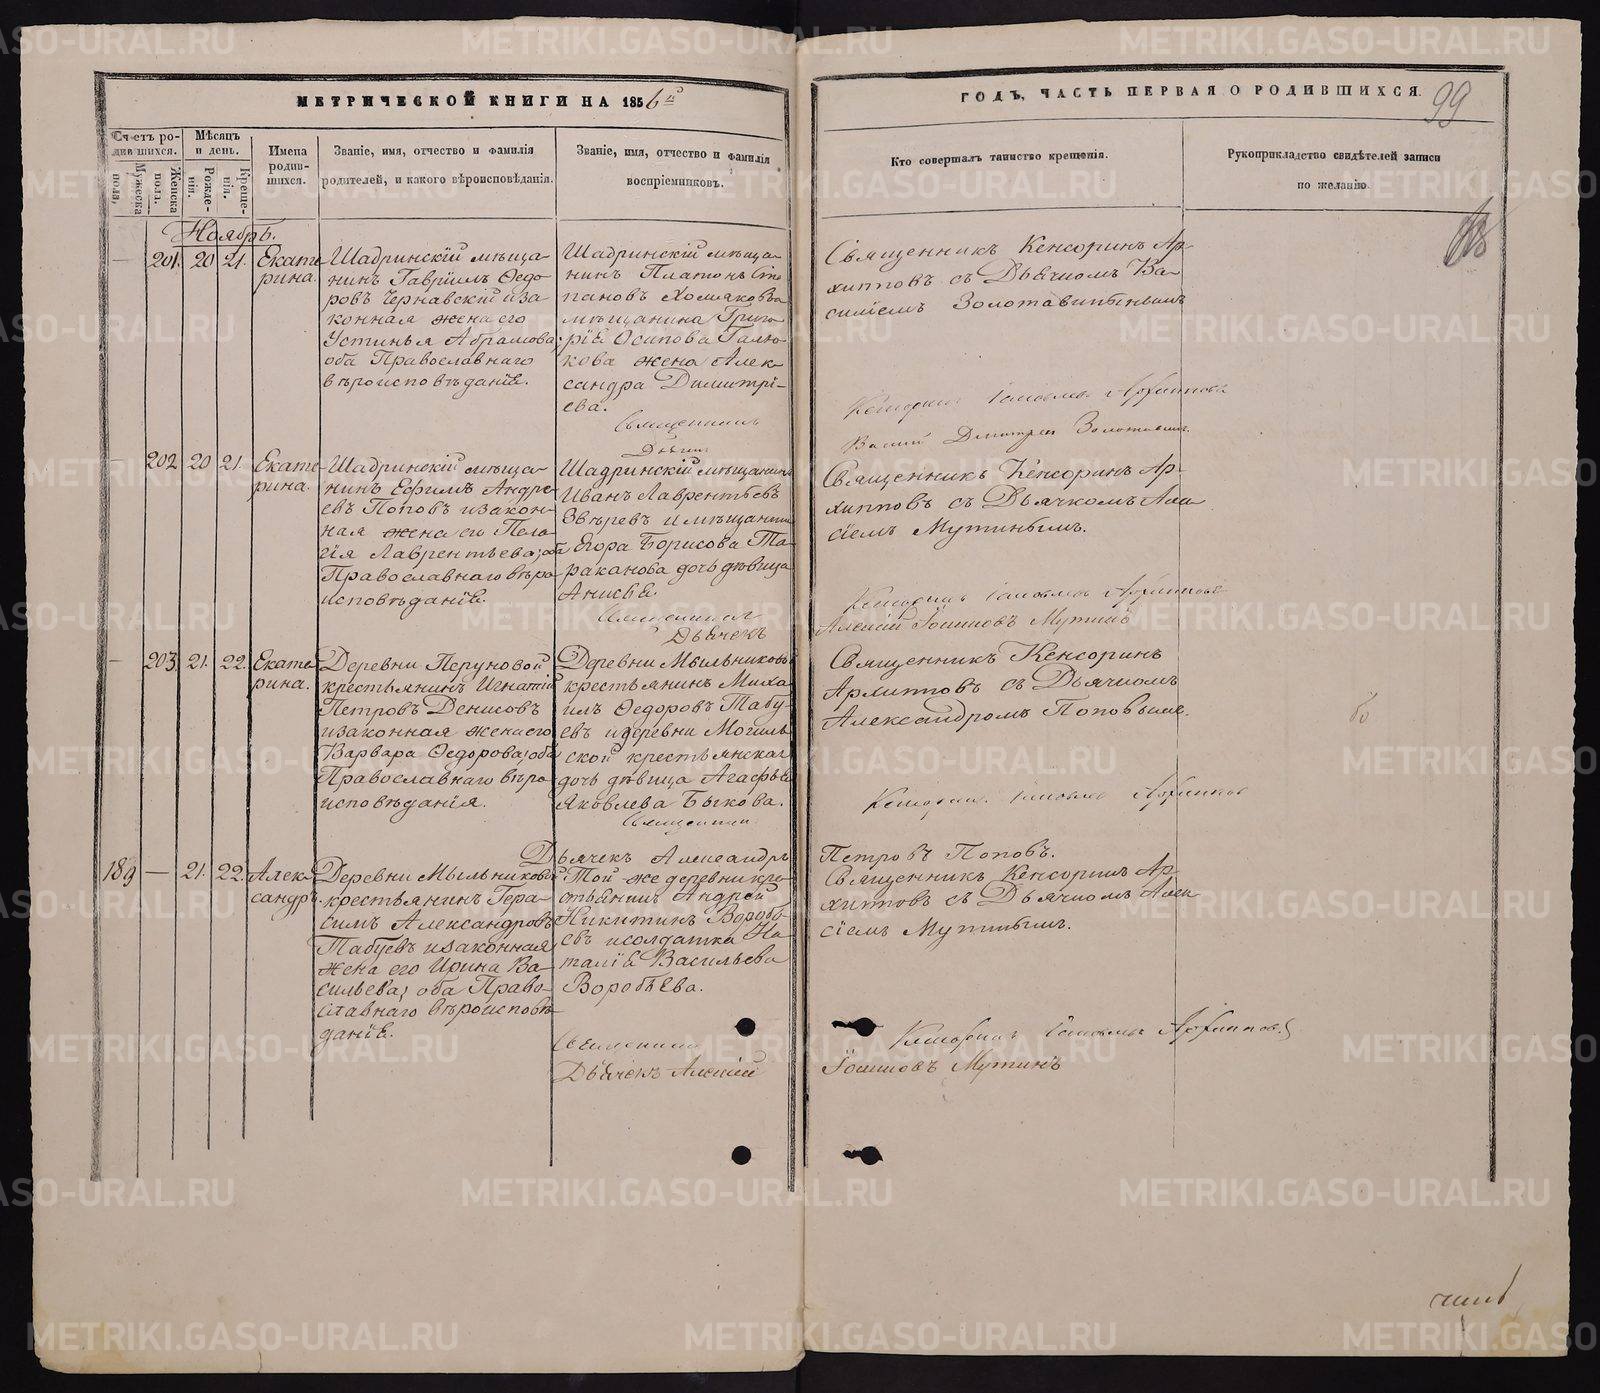 МЕТРИЧЕСКОЙ КНИГИ НА 1856й
ГОДЪ, ЧАСТЬ ПЕРВАЯ О РОДИВШИХСЯ.
99
Счетъ родившихся.
Мужеска пола,
Женска пола.
Мѣсяцъ и день.
Рожденія.
Крещенія.
Имена родившихся.
Званіе, имя, отчество и фамилія
родителей, и какого вѣроисповѣданія.
Званіе, имя, отчество и фамилія
воспріемниковъ.
Кто совершалъ таинство крещенія.
Рукоприкладство свидѣтелей записи
по желанію.
Ноябрь.
— 201. 20 21.
Екате
рина.
Шадринскій мѣща-
нинъ Гавріилъ Ѳедо
ровъ Чернавскій иза-
конная жена его
Устинья Абрамова
оба Православнаго
вѣроисповѣданія.
Шадринскій мѣща-
нинъ Платонъ Сте
пановъ Холмяковъ
мѣщанина Григо-
рія Осипова Галю-
кова жена Алек-
сандра Димитрі-
ева.
Священникъ Кенсоринъ Ар-
хипповъ съ Дьячкомъ Ва-
силіемъ Золотавинымъ
Священникъ
Кенсоринъ Іаковлевъ Архипповъ
— 202 20 21.
Екате
рина.
Шадринскій мѣща-
нинъ Ефимъ Андре-
евъ Поповъ изакон-
ная жена его Пела-
гія Лаврентьева; оба
Православнаго вѣро
исповѣданія.
Шадринскій мѣщанинъ
Иванъ Лаврентьевъ
Звѣревъ и мѣщанина
Егора Борисова Та-
раканова дочь дѣвица
Анисья.
Священникъ Кенсоринъ Ар-
хипповъ съ Дьячкомъ Алек
сіемъ Мутинымъ.
Священникъ
Кенсоринъ Іаковлевъ Архипповъ
Дьячекъ
Алексій Іоанновъ Мутинъ
— 203. 21. 22.
Екате
рина.
Деревни Перуновой
крестьянинъ Игнатій
Петровъ Денисовъ
изаконная жена его
Варвара Ѳедорова; оба
Православнаго вѣро
исповѣданія.
Деревни Мыльниковой
крестьянинъ Миха
илъ Ѳедоровъ Табу-
евъ и деревни Могиль
ской крестьянская
дочь дѣвица Агафья
Яковлева Быкова.
Священникъ Кенсоринъ
Архипповъ съ Дьячкомъ
Александромъ Поповымъ.
Священникъ
Кенсоринъ Іаковлевъ Архипповъ
Дьячекъ Александръ
Петровъ Поповъ.
189 — 21. 22.
Алек-
сандръ.
Деревни Мыльниковой
крестьянинъ Гера-
симъ Александровъ
Табуевъ изаконная
жена его Ирина Ва-
сильева; оба Право-
славнаго вѣроисповѣ
данія.
Той-же деревни кре-
стьянинъ Андрей
Никитинъ Воробь-
евъ исолдатка На-
талія Васильева
Воробьева.
Священникъ Кенсоринъ Ар-
хипповъ съ Дьячкомъ Алек
сіемъ Мутинымъ.
Священникъ
Кенсоринъ Іаковлевъ Архипповъ
Дьячекъ Алексій
Іоанновъ Мутинъ
METRIKI.GASO-URAL.RU